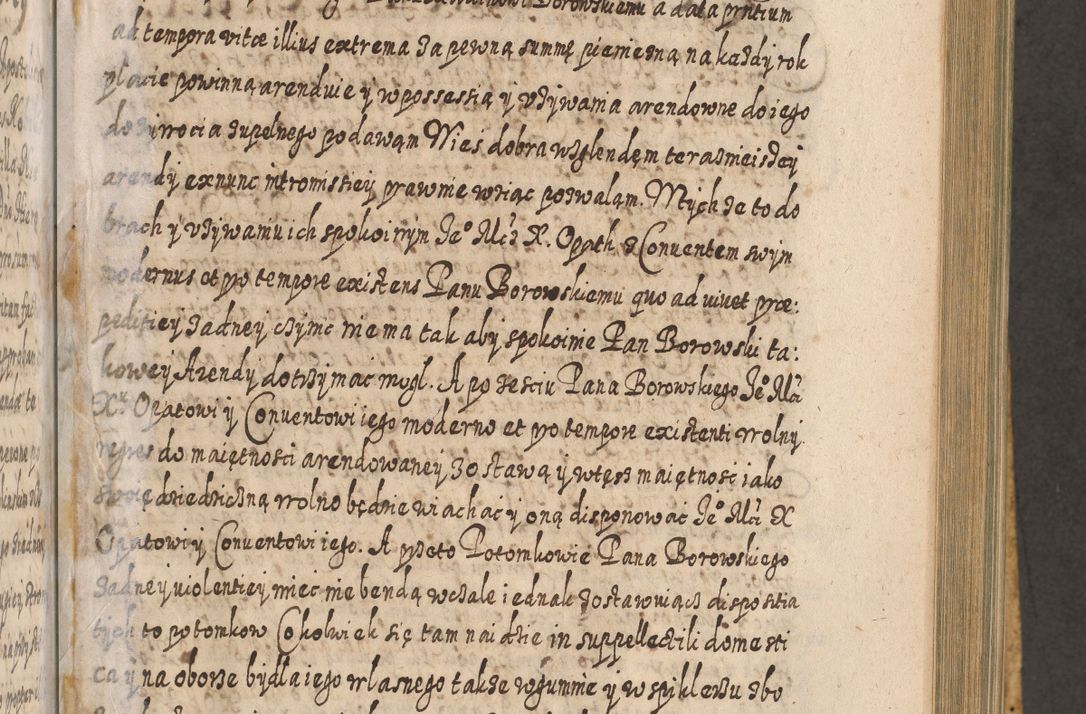 Borowskiemu a data prntium
ad tempora vitæ illius extrema za pewną summę pieniezną na każdy rok
płacie powinną arenduie y w possessią y vżywania arendowne do iego
do zywocia zupełnego podawąm Wieś dobra wzglendęm teraznieiszey
arendy ex nunc intromissiey prawnie wziąc pozwaląm. W tych że to do
brach y vżywaniu ich spokoinym Je° Mći X. Opath z Conuentem swym
modernus et pro tempore existens Panu Borowskiemu quo ad uiuet præ:
peditiey żadney czynic nie ma tak aby spokoinie Pan Borowski ta:
kowey Arendy dotrzymac mogł. A po zesciu Pana Borowskiego Je° Mći
Xu Opatowi y Conuentowi iego moderno et pro tempore existenti wolny
regres do maiętnosci arendowaney zostawą y w tęsz maiętnosc iako
swoię dziedziczną wolno będzie wiachać y oną disponowac Je° Mći X
Opatowi y Conuentowi iego. A przeto Potomkowie Pana Borowskiego
żadney uiolentiey miec nie bendą wczale iednak zostawuiącz dispositia
tych to potomkow Cokolwiek się tam naidzie in suppellectili domesti
ca y na oborze bydła iego własnego takze w gumnie y w spiklerzu zbo